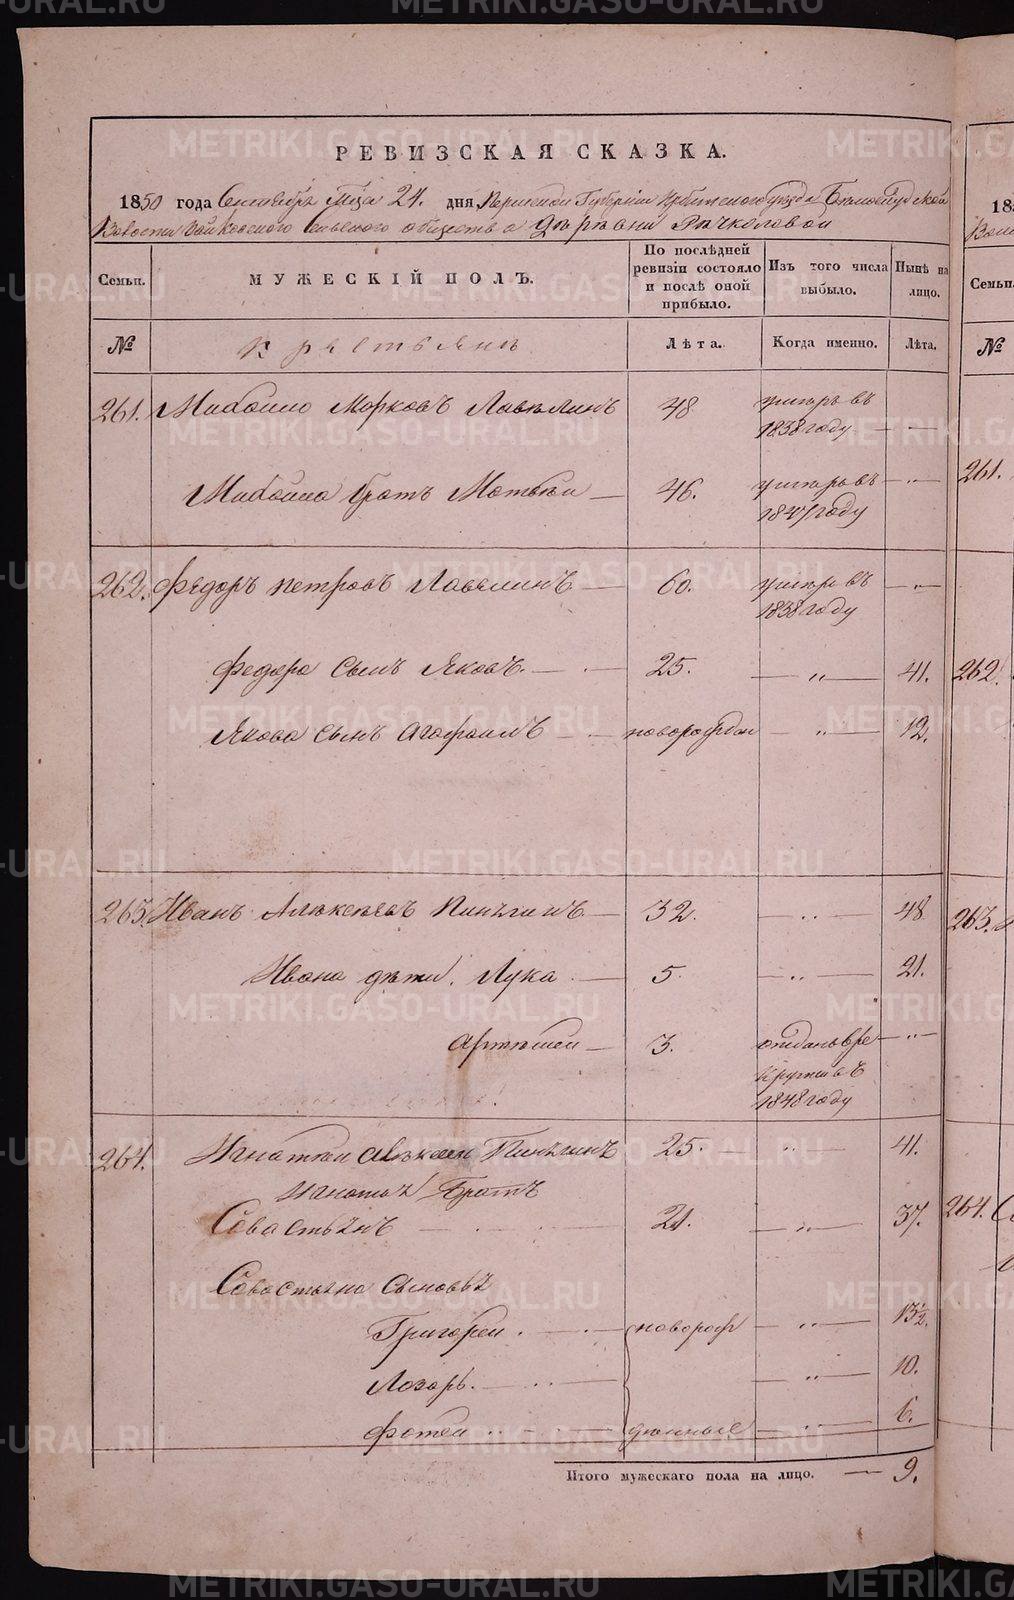 РЕВИЗСКАЯ СКАЗКА.
1850 года Сентября м-ца 21. дня, Пермской Губернии Ирбитского уезда Белослудской
Волости Зайковского Сельского общества Деревни Речкаловой
Семьи. МУЖЕСКІЙ ПОЛЪ. По послѣдней ревизіи состояло и послѣ оной прибыло. Изъ того числа выбыло. Нынѣ на лицо.
№ Крестьянъ Лѣта. Когда именно. Лѣта.
261. Михайло Марковъ Лавелинъ 48 умеръ въ
1838 году — „ —
Михайла братъ Матвѣй — 46. умеръ въ — „ —
1847 году
262. Федоръ Петровъ Лавелинъ — 60. умеръ въ — „ —
1838 году
Федора сынъ Яковъ — 25. — „ — 41.
Якова сынъ Агафоилъ — новорожден — „ — 12.
263. Иванъ Алексеевъ Пинегинъ — 32. — „ — 48
Ивана дѣти. Лука — 5. — „ — 21.
Артемей — 3. отданъ в ре — „ —
круты въ
1848 году
264. Игнатей Алексеев Пинегинъ 25. — „ — 41.
Игнатья братъ
Савастьянъ — 21. — „ — 37.
Савостьяна сыновья
Григорей. — новорож — „ — 13½.
Лазарь. — „ — 10.
Фотей — денные — „ — 6.
Итого мужескаго пола на лицо. — 9.
18
Воло
Семьи.
№
261.
262.
263.
264.
METRIKI.GASO-URAL.RU